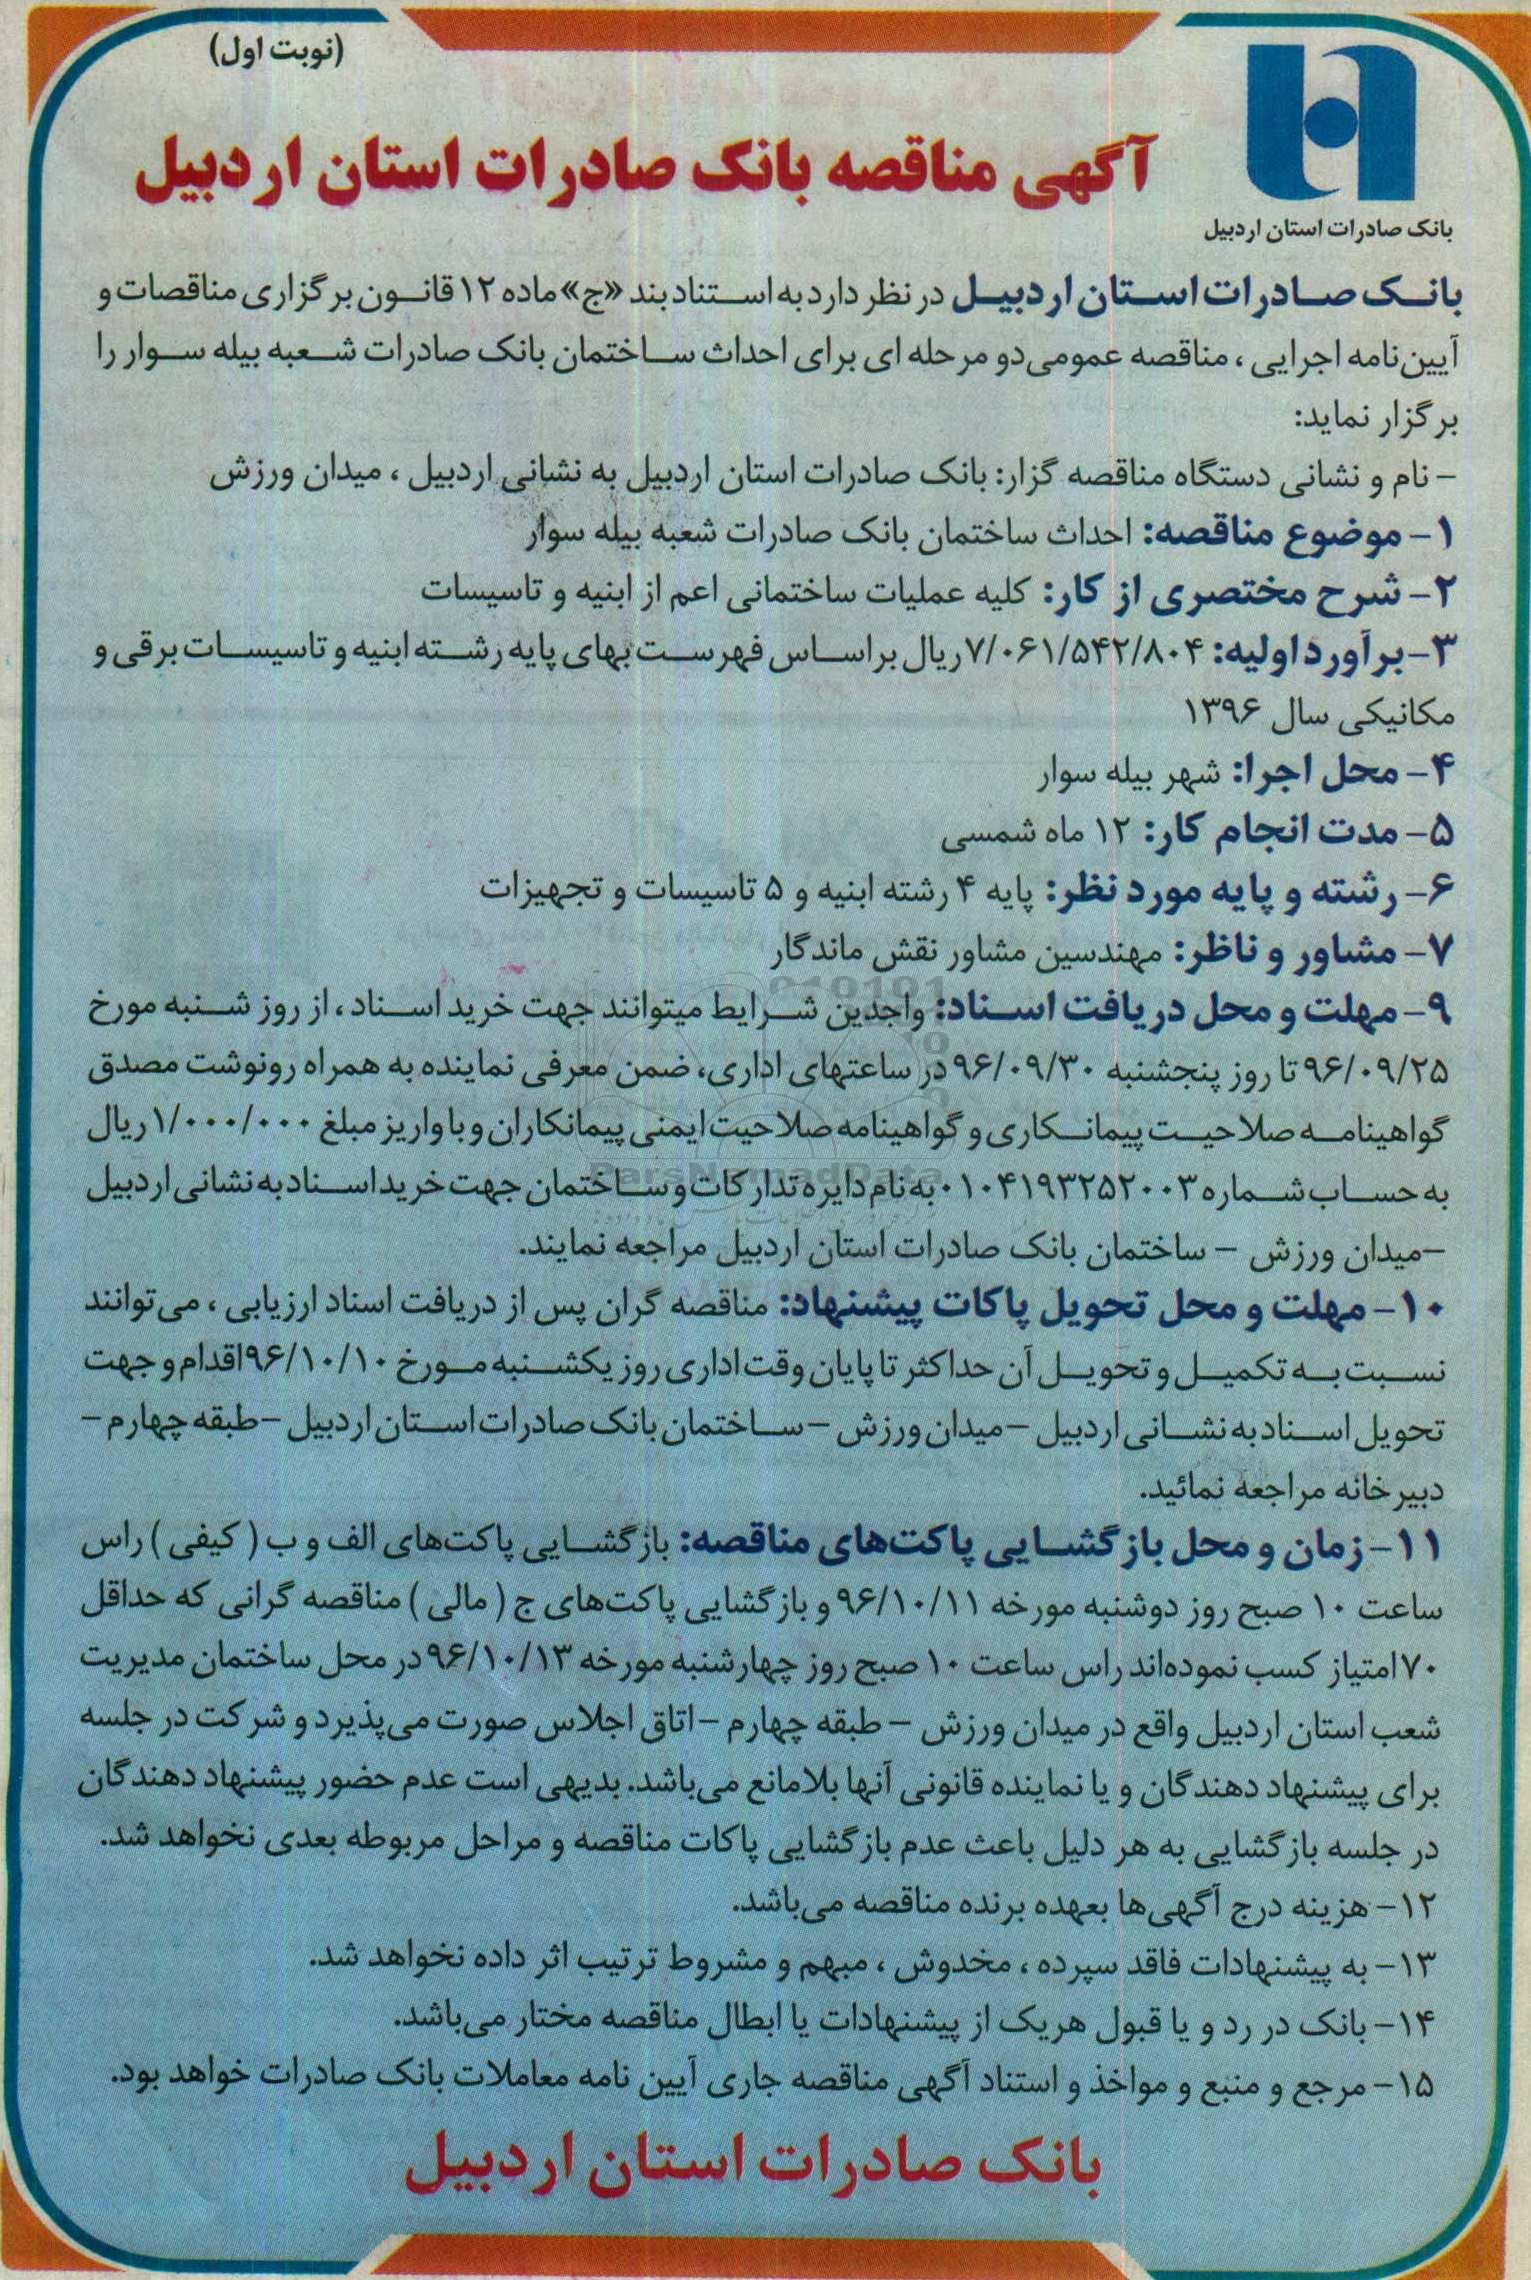 (نوبت اول)
آگهی مناقصه بانک صادرات استان اردبیل
بانک صادرات استان اردبیل
بانک صادرات استان اردبیل در نظر دارد به استناد بند «ج» ماده ۱۲ قانون برگزاری مناقصات و
آیین‌نامه اجرایی ، مناقصه عمومی دو مرحله ای برای احداث ساختمان بانک صادرات شعبه بیله سوار را
برگزار نماید:
- نام و نشانی دستگاه مناقصه گزار: بانک صادرات استان اردبیل به نشانی اردبیل ، میدان ورزش
۱- موضوع مناقصه: احداث ساختمان بانک صادرات شعبه بیله سوار
۲- شرح مختصری از کار: کلیه عملیات ساختمانی اعم از ابنیه و تاسیسات
۳- برآورد اولیه: ۷/۰۶۱/۵۴۲/۸۰۴ ریال براساس فهرست بهای پایه رشته ابنیه و تاسیسات برقی و
مکانیکی سال ۱۳۹۶
۴- محل اجرا: شهر بیله سوار
۵- مدت انجام کار: ۱۲ ماه شمسی
۶- رشته و پایه مورد نظر: پایه ۴ رشته ابنیه و ۵ تاسیسات و تجهیزات
۷- مشاور و ناظر: مهندسین مشاور نقش ماندگار
۹- مهلت و محل دریافت اسناد: واجدین شرایط میتوانند جهت خرید اسناد ، از روز شنبه مورخ
۹۶/۰۹/۲۵ تا روز پنجشنبه ۹۶/۰۹/۳۰ در ساعتهای اداری، ضمن معرفی نماینده به همراه رونوشت مصدق
گواهینامه صلاحیت پیمانکاری و گواهینامه صلاحیت ایمنی پیمانکاران و با واریز مبلغ ۱/۰۰۰/۰۰۰ ریال
به حساب شماره ۰۱۰۴۱۹۳۲۵۲۰۰۳ به نام دایره تدارکات و ساختمان جهت خرید اسناد به نشانی اردبیل
-میدان ورزش - ساختمان بانک صادرات استان اردبیل مراجعه نمایند.
ParsNamadData
۱۰- مهلت و محل تحویل پاکات پیشنهاد: مناقصه گران پس از دریافت اسناد ارزیابی ، می‌توانند
نسبت به تکمیل و تحویل آن حداکثر تا پایان وقت اداری روز یکشنبه مورخ ۹۶/۱۰/۱۰ اقدام و جهت
تحویل اسناد به نشانی اردبیل -میدان ورزش -ساختمان بانک صادرات استان اردبیل -طبقه چهارم -
دبیرخانه مراجعه نمائید.
۱۱- زمان و محل بازگشایی پاکت‌های مناقصه: بازگشایی پاکت‌های الف و ب ( کیفی ) راس
ساعت ۱۰ صبح روز دوشنبه مورخه ۹۶/۱۰/۱۱ و بازگشایی پاکت‌های ج ( مالی ) مناقصه گرانی که حداقل
۷۰ امتیاز کسب نموده‌اند راس ساعت ۱۰ صبح روز چهارشنبه مورخه ۹۶/۱۰/۱۳ در محل ساختمان مدیریت
شعب استان اردبیل واقع در میدان ورزش - طبقه چهارم -اتاق اجلاس صورت می‌پذیرد و شرکت در جلسه
برای پیشنهاد دهندگان و یا نماینده قانونی آنها بلامانع می‌باشد. بدیهی است عدم حضور پیشنهاد دهندگان
در جلسه بازگشایی به هر دلیل باعث عدم بازگشایی پاکات مناقصه و مراحل مربوطه بعدی نخواهد شد.
۱۲- هزینه درج آگهی‌ها بعهده برنده مناقصه می‌باشد.
۱۳- به پیشنهادات فاقد سپرده ، مخدوش ، مبهم و مشروط ترتیب اثر داده نخواهد شد.
۱۴- بانک در رد و یا قبول هریک از پیشنهادات یا ابطال مناقصه مختار می‌باشد.
۱۵- مرجع و منبع و مواخذ و استناد آگهی مناقصه جاری آیین نامه معاملات بانک صادرات خواهد بود.
بانک صادرات استان اردبیل